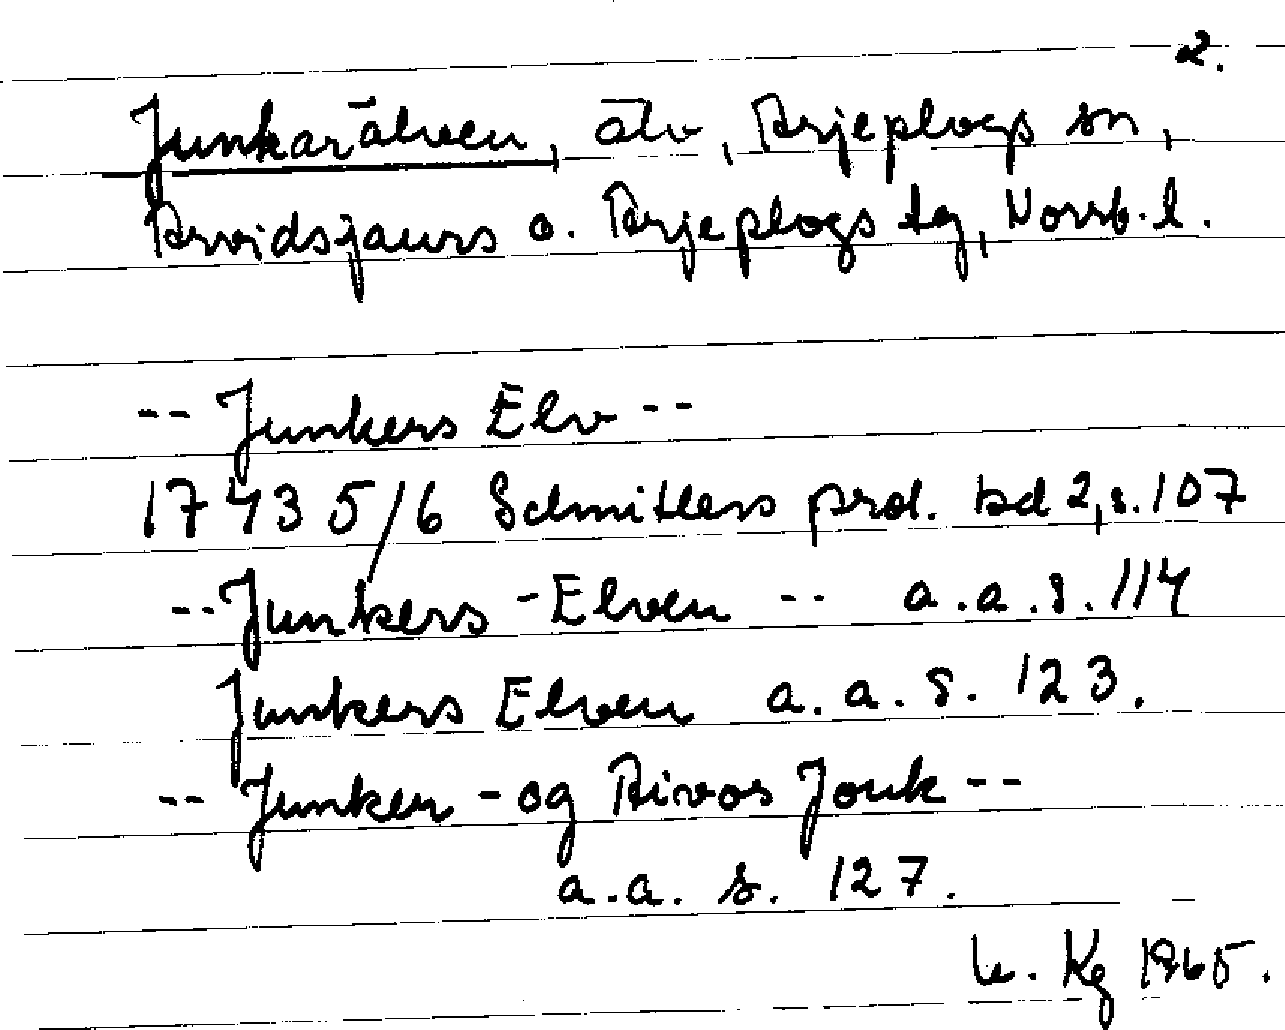 2.
Junkarälven, älv, Arjeplogs sn,
Arvidsjaurs o. Arjeplogs tg, Norrb. l.
-- Junkers Elv --
1743 5/6 Schnitlers prot. bd 2, s. 107
-- Junkers - Elven -- a.a. s. 114
Junkers Elven a.a. s. 123.
-- Junker - og Aivos Jouk --
a.a. s. 127.
Kg 1965.